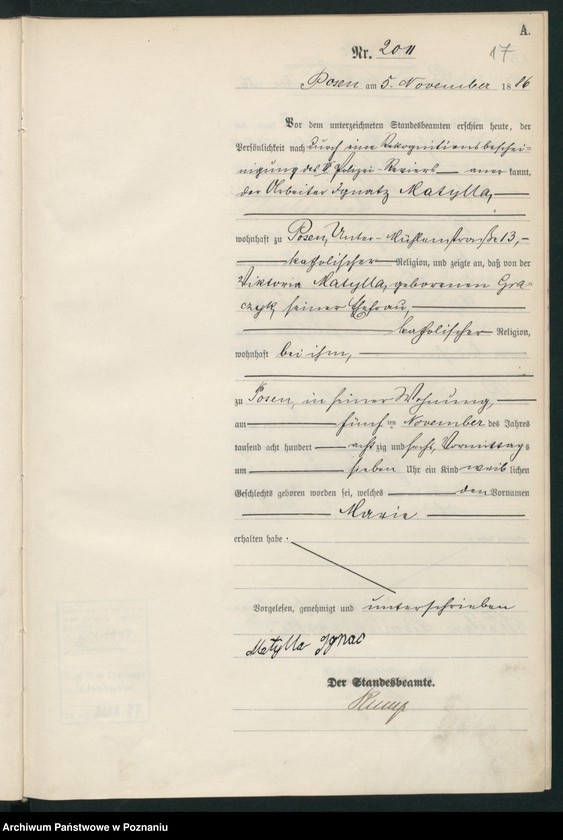 A.
Nr. 2011
17
Posen am 5. November 1886
Vor dem unterzeichneten Standesbeamten erschien heute, der
Persönlichkeit nach durch eine Rekognitionsbeschei-
nigung des V. Polizei-Reviers aner kannt,
der Arbeiter Ignatz Matylla,
wohnhaft zu Posen, Unter-Mühlenstraße 13,
katholischer Religion, und zeigte an, daß von der
Viktoria Matylla, geborenen Gra-
czyk, seiner Ehefrau,
katholischer Religion,
wohnhaft bei ihm,
zu Posen, in seiner Wohnung,
am fünften November des Jahres
tausend acht hundert achtzig und sechs, Vormittags
um sieben Uhr ein Kind weiblichen
Geschlechts geboren worden sei, welches den Vornamen
Marie
erhalten habe.
Vorgelesen, genehmigt und unterschrieben
Matylla Ignac
Der Standesbeamte.
Archiwum Państwowe w Poznaniu